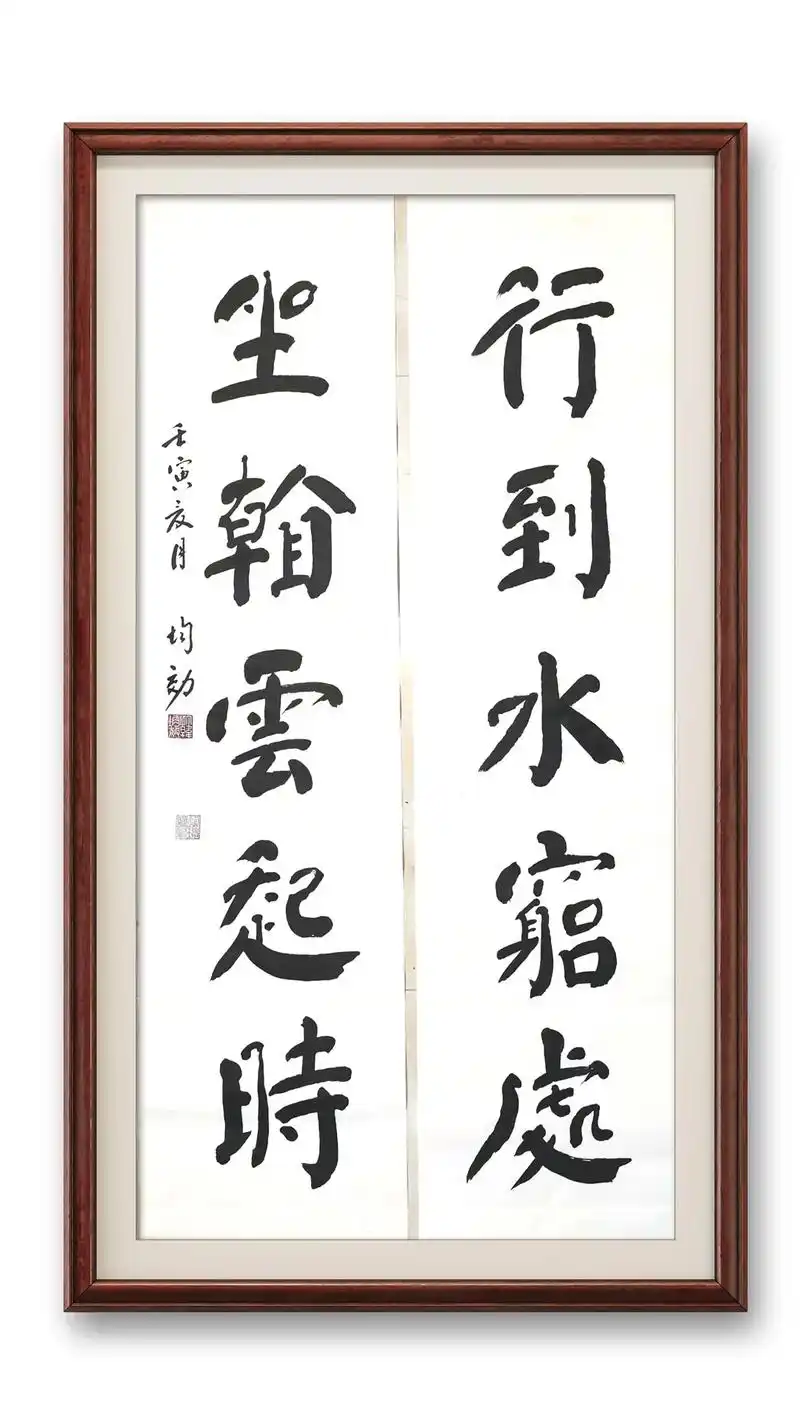 行到水竆處
坐𥉑雲起時
壬寅夏月 均